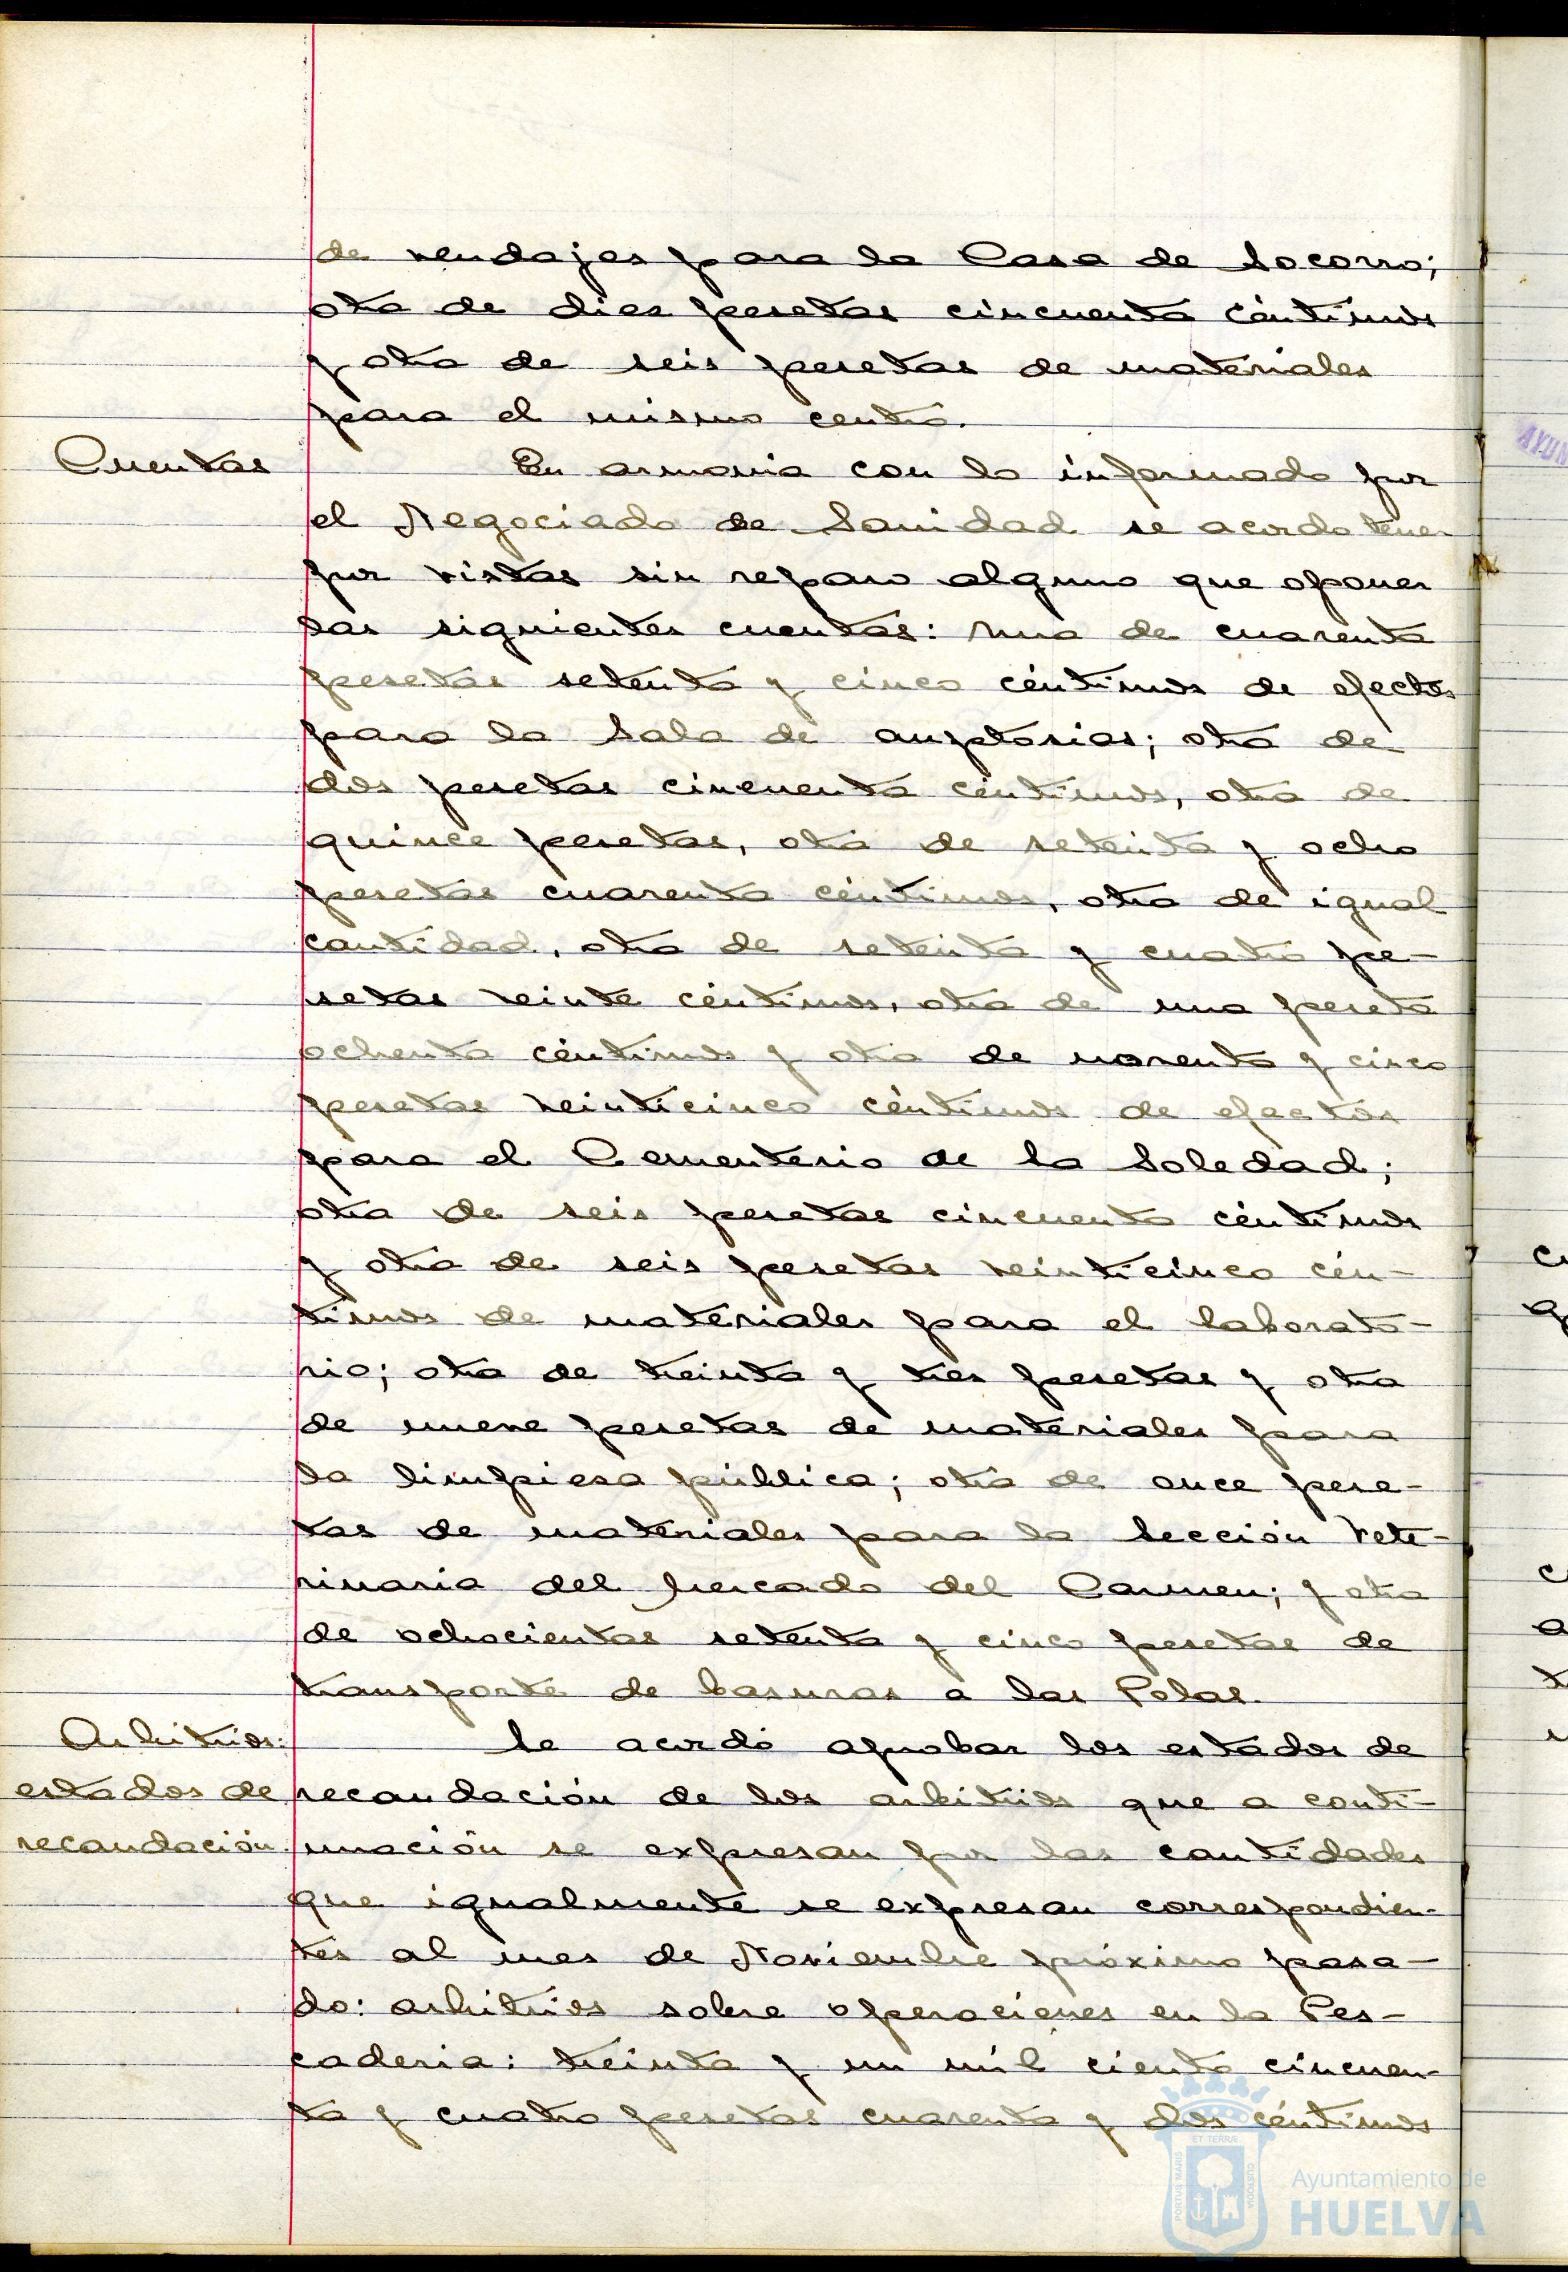 de vendajes para la Casa de Socorro;
otra de diez pesetas cincuenta céntimos
y otra de seis pesetas de materiales
para el mismo centro.
Cuentas
En armonía con lo informado por
el Negociado de Sanidad se acordó tener
por vistas sin reparo alguno que oponer
las siguientes cuentas: una de cuarenta
pesetas setenta y cinco céntimos de efectos
para la Sala de autopsias; otra de
dos pesetas cincuenta céntimos, otra de
quince pesetas, otra de setenta y ocho
pesetas cuarenta céntimos, otra de igual
cantidad, otra de setenta y cuatro pe-
setas veinte céntimos, otra de una peseta
ochenta céntimos y otra de noventa y cinco
pesetas veinticinco céntimos de efectos
para el Cementerio de la Soledad;
otra de seis pesetas cincuenta céntimos
y otra de seis pesetas veinticinco cén-
timos de materiales para el laborato-
rio; otra de treinta y tres pesetas y otra
de nueve pesetas de materiales para
la limpieza pública; otra de once pese-
tas de materiales para la Sección Vete-
rinaria del Mercado del Carmen; y otra
de ochocientas setenta y cinco pesetas de
transporte de basuras a las Polas.
Arbitrios:
estados de
recaudación.
Se acordó aprobar los estados de
recaudación de los arbitrios que a conti-
nuación se expresan por las cantidades
que igualmente se expresan correspondien-
tes al mes de Noviembre próximo pasa-
do: arbitrios sobre operaciones en la Pes-
cadería: treinta y un mil ciento cincuen-
ta y cuatro pesetas cuarenta y dos céntimos
AYUN
PORTUS MARIS
ET TERRÆ
CUSTODIA
Ayuntamiento de
HUELVA